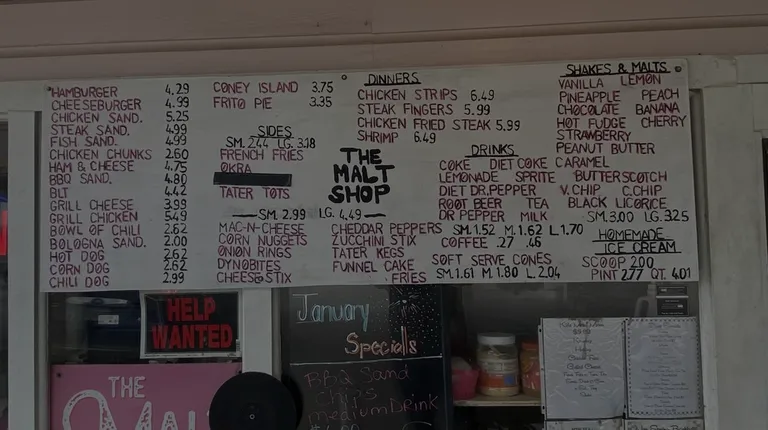 HAMBURGER 4.29
CHEESEBURGER 4.99
CHICKEN SAND. 5.25
STEAK SAND. 4.99
FISH SAND. 4.99
CHICKEN CHUNKS 2.60
HAM & CHEESE 4.75
BBQ SAND. 4.80
BLT 4.42
GRILL CHEESE 3.99
GRILL CHICKEN 5.49
BOWL OF CHILI 2.62
BOLOGNA SAND. 2.00
HOT DOG 2.62
CORN DOG 2.62
CHILI DOG 2.99
CONEY ISLAND 3.75
FRITO PIE 3.35
SIDES
SM. 2.44 LG. 3.18
FRENCH FRIES
OKRA
TATER TOTS
SM. 2.99 LG. 4.49
MAC-N-CHEESE
CORN NUGGETS
ONION RINGS
DYNOBITES
CHEESE STIX
CHEDDAR PEPPERS
ZUCCHINI STIX
TATER KEGS
FUNNEL CAKE
FRIES
DINNERS
CHICKEN STRIPS 6.49
STEAK FINGERS 5.99
CHICKEN FRIED STEAK 5.99
SHRIMP 6.49
THE
MALT
SHOP
DRINKS
COKE DIET COKE
LEMONADE SPRITE
DIET DR.PEPPER
ROOT BEER TEA
DR PEPPER MILK
SM.1.52 M.1.62 L.1.70
COFFEE .27 .46
SOFT SERVE CONES
SM.1.61 M.1.80 L.2.04
SHAKES & MALTS
VANILLA LEMON
PINEAPPLE PEACH
CHOCOLATE BANANA
HOT FUDGE CHERRY
STRAWBERRY
PEANUT BUTTER
CARAMEL
BUTTERSCOTCH
V.CHIP C.CHIP
BLACK LICORICE
SM.3.00 LG.3.25
HOMEMADE
ICE CREAM
SCOOP 2.00
PINT 2.77 QT. 4.01
HELP
WANTED
THE
January
Specials
BBQ Sand
Chips
medium Drink